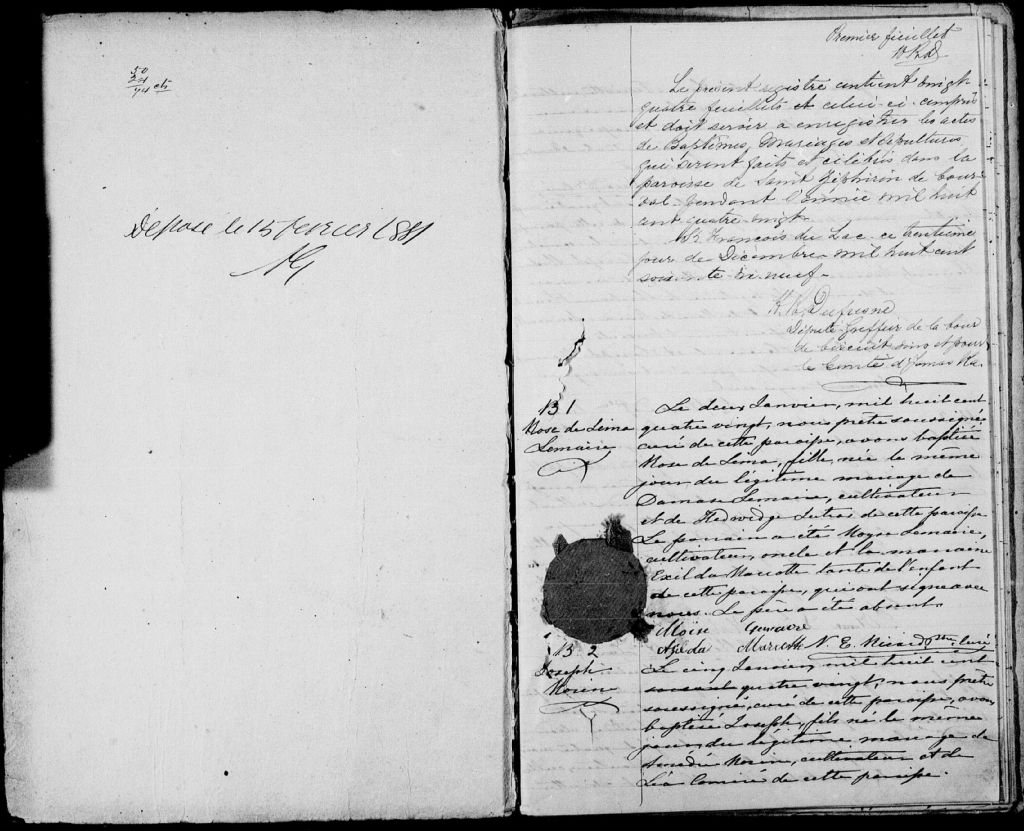 50
24
74 cts
Déposé le 15 février 1881
Premier feuillet
Le présent registre contient vingt-
quatre feuillets et celui-ci compris
et doit servir a enregistrer les actes
de Baptêmes, Mariages et Sépultures
qui seront faits et célébrés dans la
paroisse de Saint Zéphirin de Cour-
val pendant l'année mil huit
cent quatre-vingt.
St François du Lac ce trentième
jour de Décembre mil huit cent
soixante dix neuf.
Dufresne
Député Greffier de la Cour
de Circuit dans et pour
le Comté d'Yamaska.
B 1
Rose de Lima
Lemaire
Le deux Janvier, mil huit cent
quatre vingt, nous prêtre soussigné
curé de cette paroisse, avons baptisé
Rose de Lima, fille, née le même
jour du légitime mariage de
Damase Lemaire, cultivateur
et de Hedwidge de cette paroisse.
Le parrain a été Moyse Lemaire,
cultivateur, oncle et la marraine
Exilda Marcotte tante de l'enfant
de cette paroisse, qui ont signé avec
nous. Le père a été absent.
Moïse Lemaire
Exilda Marcotte N. E. Ricard Ptre, Curé
B 2
Joseph
Morin
Le cinq Janvier, mil huit cent
quatre vingt, nous prêtre
soussigné, curé de cette paroisse, avons
baptisé Joseph, fils né le même
jour, du légitime mariage de
Morin, cultivateur et de
Léa de cette paroisse.